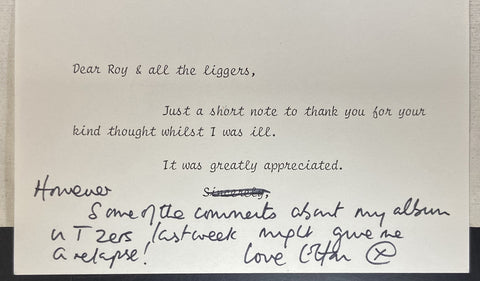 Dear Roy & all the liggers,
Just a short note to thank you for your
kind thought whilst I was ill.
It was greatly appreciated.
Sincerely,
However
Some of the comments about my album
in T Zers last week might give me
a relapse!
Love Elton X